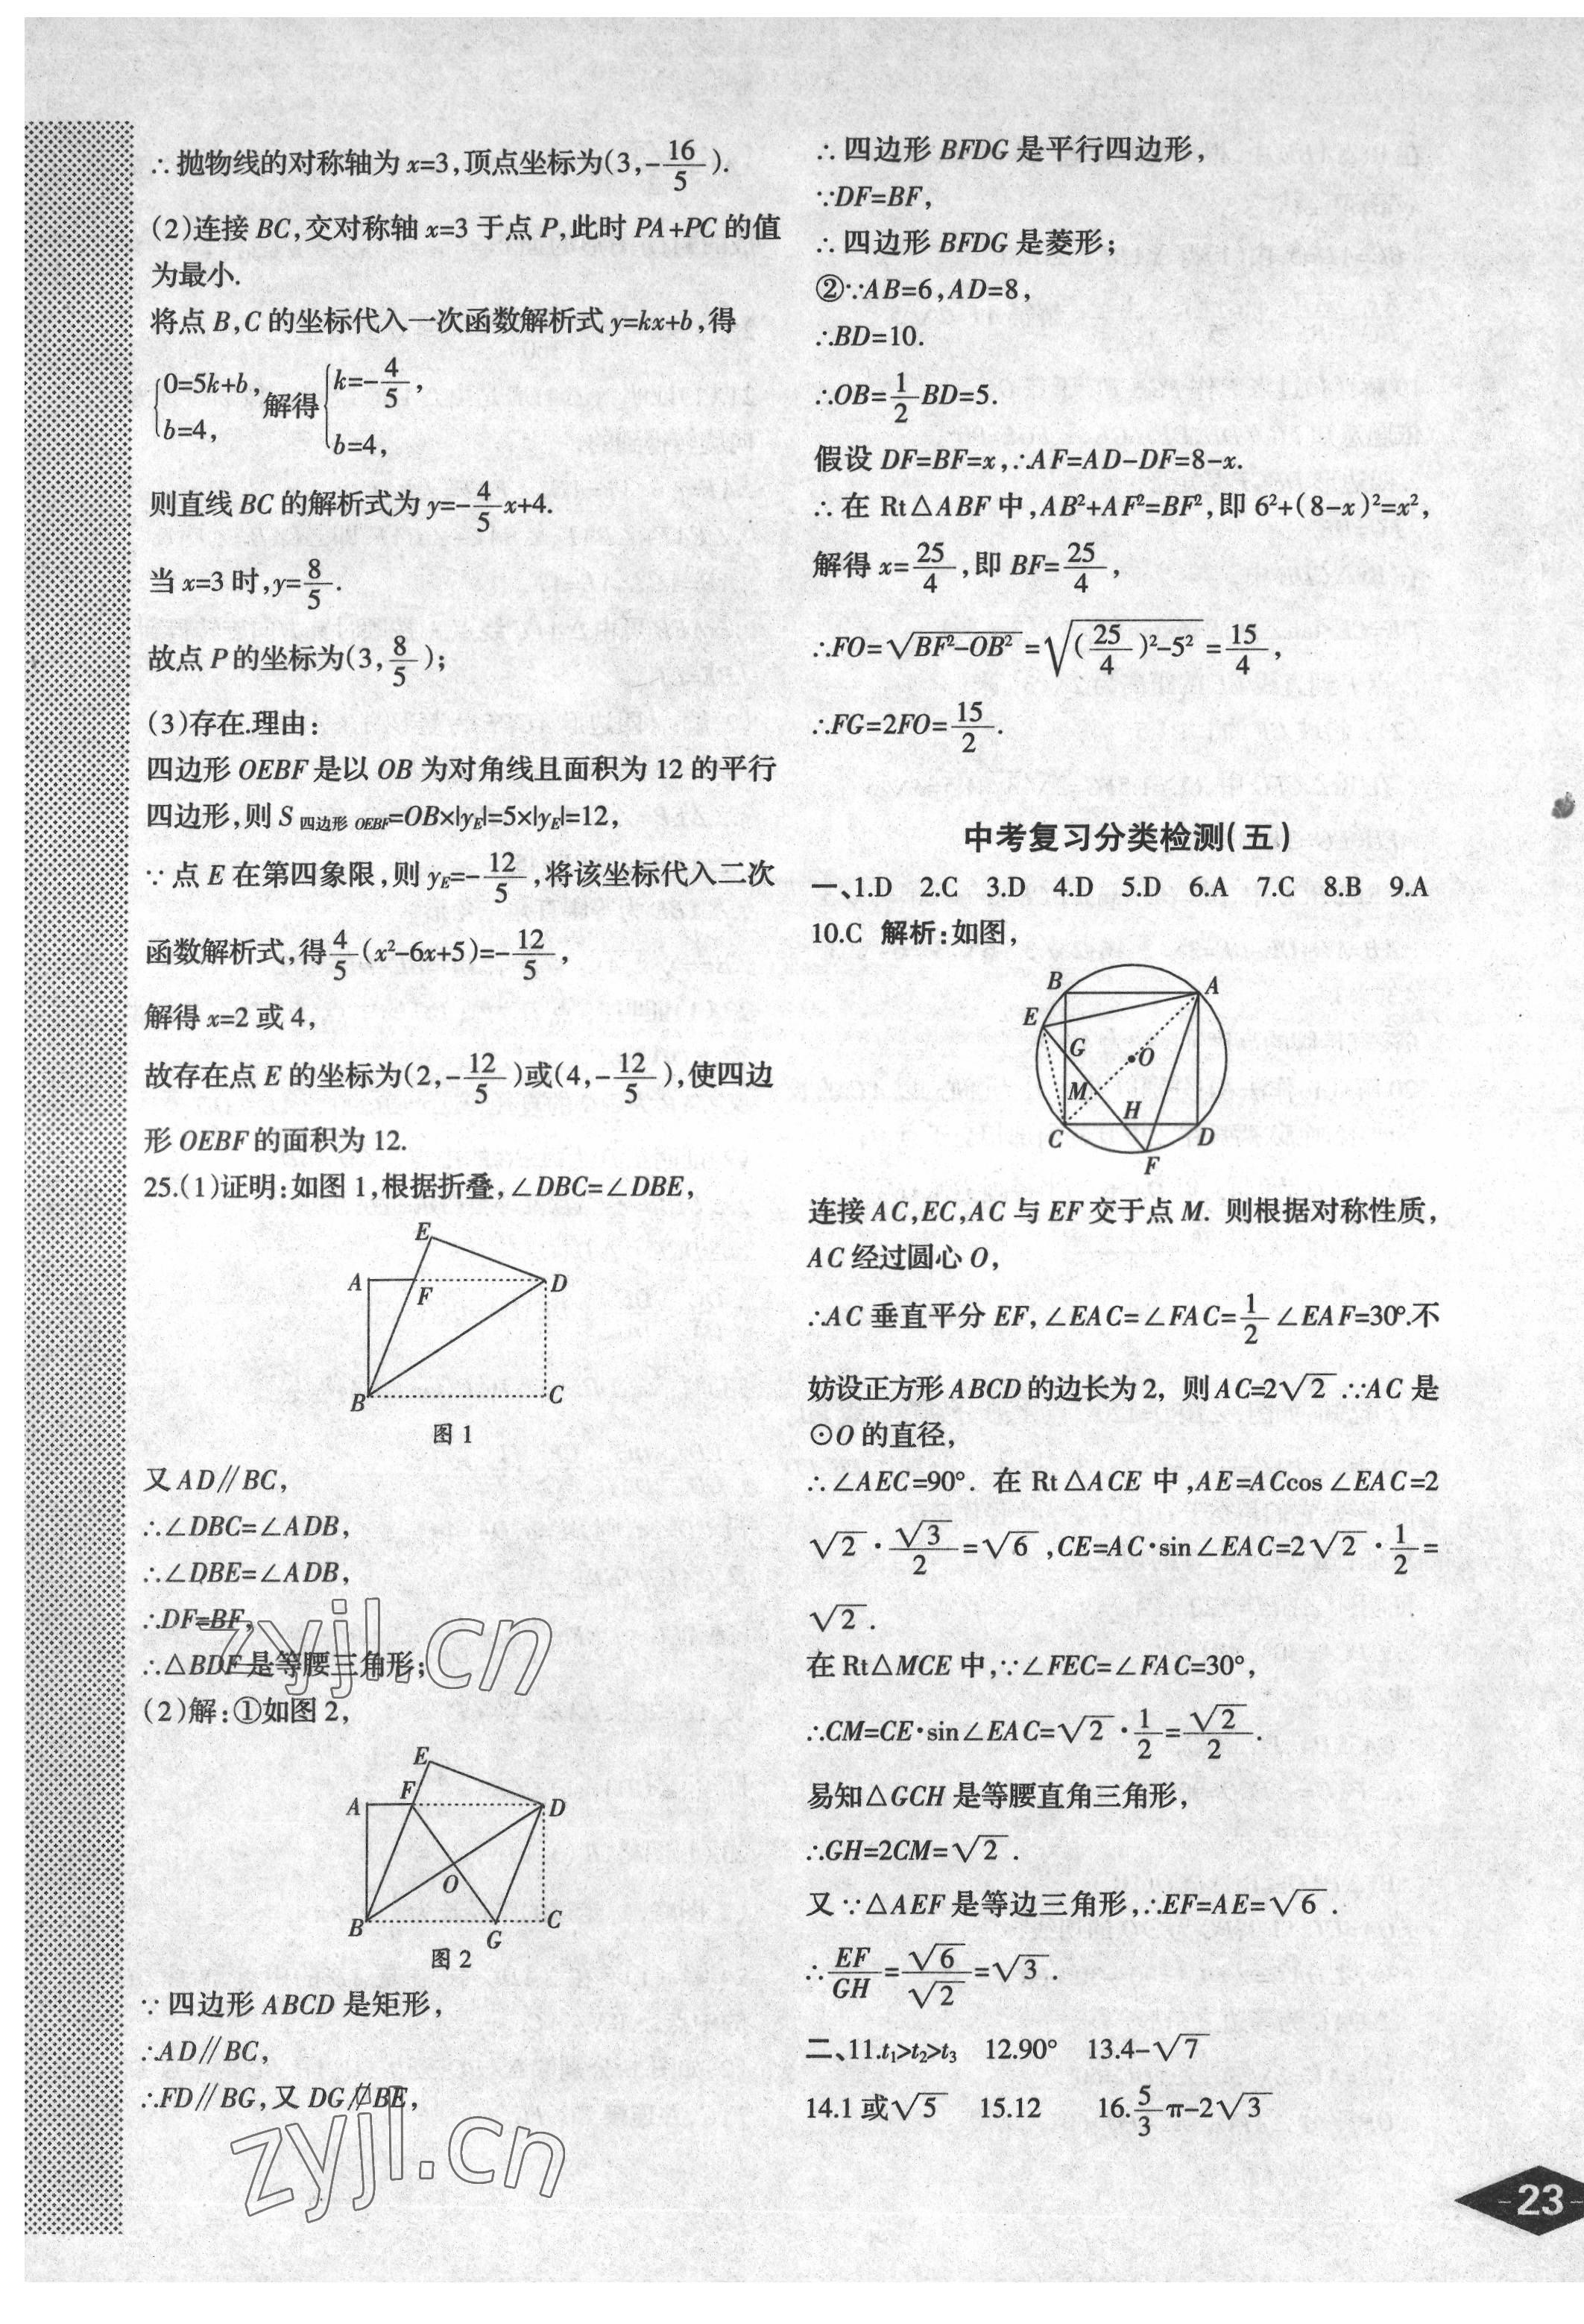 ∴抛物线的对称轴为x=3,顶点坐标为(3,-16/5).
(2)连接BC,交对称轴x=3于点P,此时PA+PC的值
为最小.
将点B,C的坐标代入一次函数解析式y=kx+b,得
{0=5k+b, b=4, 解得{k=-4/5, b=4,
则直线BC的解析式为y=-4/5x+4.
当x=3时,y=8/5.
故点P的坐标为(3,8/5);
(3)存在.理由:
四边形OEBF是以OB为对角线且面积为12的平行
四边形,则S四边形OEBF=OB×|yE|=5×|yE|=12,
∵点E在第四象限,则yE=-12/5,将该坐标代入二次
函数解析式,得4/5(x²-6x+5)=-12/5,
解得x=2或4,
故存在点E的坐标为(2,-12/5)或(4,-12/5),使四边
形OEBF的面积为12.
25.(1)证明:如图1,根据折叠,∠DBC=∠DBE,
E
A F D
B C
图1
又AD∥BC,
∴∠DBC=∠ADB,
∴∠DBE=∠ADB,
∴DF=BF,
∴△BDF是等腰三角形;
(2)解:①如图2,
E
F
A D
O
B G C
图2
∵四边形ABCD是矩形,
∴AD∥BC,
∴FD∥BG,又DG∥BE,
zyjl.cn
zyjl.cn
∴四边形BFDG是平行四边形,
∵DF=BF,
∴四边形BFDG是菱形;
②∵AB=6,AD=8,
∴BD=10.
∴OB=1/2BD=5.
假设DF=BF=x,∴AF=AD-DF=8-x.
∴在Rt△ABF中,AB²+AF²=BF²,即6²+(8-x)²=x²,
解得x=25/4,即BF=25/4,
∴FO=√(BF²-OB²)=√((25/4)²-5²)=15/4,
∴FG=2FO=15/2.
中考复习分类检测(五)
一、1.D 2.C 3.D 4.D 5.D 6.A 7.C 8.B 9.A
10.C 解析:如图,
B A
E
G O
M H
C D
F
连接AC,EC,AC与EF交于点M.则根据对称性质,
AC经过圆心O,
∴AC垂直平分EF,∠EAC=∠FAC=1/2∠EAF=30°.不
妨设正方形ABCD的边长为2,则AC=2√2∵AC是
⊙O的直径,
∴∠AEC=90°.在Rt△ACE中,AE=ACcos∠EAC=2
√2·√3/2=√6,CE=AC·sin∠EAC=2√2·1/2=
√2.
在Rt△MCE中,∵∠FEC=∠FAC=30°,
∴CM=CE·sin∠EAC=√2·1/2=√2/2.
易知△GCH是等腰直角三角形,
∴GH=2CM=√2.
又∵△AEF是等边三角形,∴EF=AE=√6.
∴EF/GH=√6/√2=√3.
二、11.t₁>t₂>t₃ 12.90° 13.4-√7
14.1或√5 15.12 16.5/3π-2√3
-23-